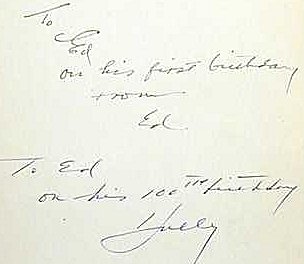 To
Ed
on his first birthday
from
Ed
To Ed
on his 100TH birthday